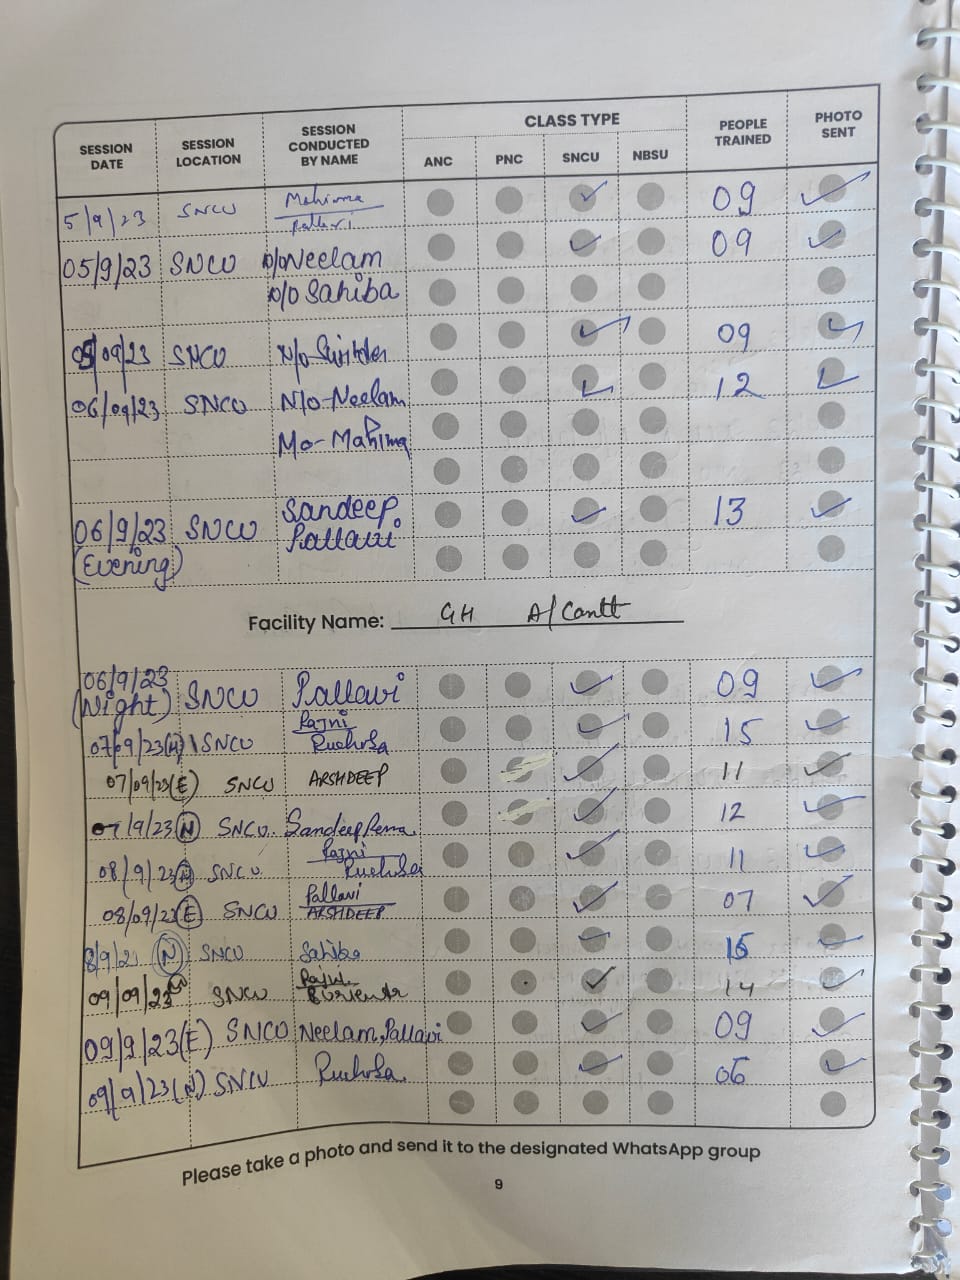 SESSION DATE SESSION LOCATION SESSION CONDUCTED BY NAME CLASS TYPE PEOPLE TRAINED PHOTO SENT
ANC PNC SNCU NBSU
5/9/23 SNCU Mahima 09
Pallavi
05/9/23 SNCU N/O Neelam 09
N/O Sahiba
05/09/23 SNCU N/O 09
06/09/23 SNCU N/O-Neelam 12
Mahima
06/9/23 SNCU Sandeep 13
(Evening) Pallavi
Facility Name: GH A/Cantt
06/9/23 SNCU Pallavi 09
(Night)
07/09/23(M) SNCU Rajni 15
Ruchika
07/09/23(E) SNCU ARSHDEEP 11
07/9/23(N) SNCU. Sandeep 12
08/9/23(M) SNCU Rajni 11
Ruchika
08/09/23(E) SNCU Pallavi 07
ARSHDEEP
8/9/23 (N) SNCU Sahiba 15
09/09/23 SNCU Rajni 14
09/9/23(E) SNCU Neelam, Pallavi 09
09/9/23(N) SNCU Ruchika 06
Please take a photo and send it to the designated WhatsApp group
9